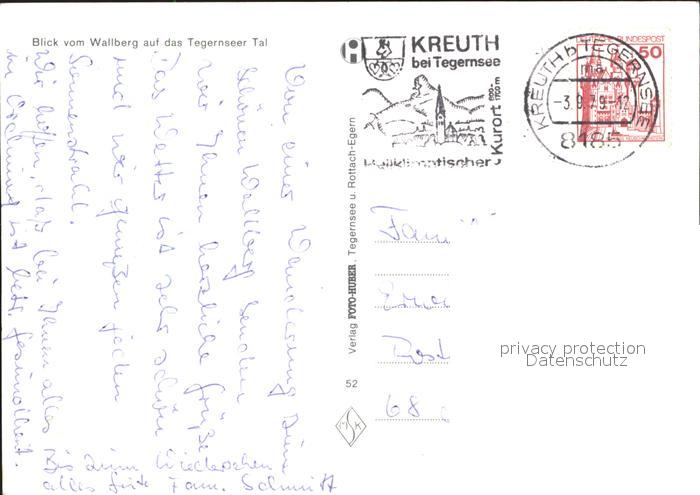 Blick vom Wallberg auf das Tegernseer Tal
Von einer Wanderung zum
schönen Wallberg senden
wir Ihnen herzliche Grüße
Das Wetter ist sehr schön
und wir genießen jeden
Sonnenstrahl.
Wir hoffen, daß bei Ihnen alles
in Ordnung ist betr. Gesundheit.
Bis zum Wiedersehen
alles Gute Fam. Schmitt
Verlag FOTO-HUBER, Tegernsee u. Rottach-Egern
52
KREUTH
bei Tegernsee
Kurort
Heilklimatischer
KREUTH b TEGERNSEE
ma
-3.9.79-12
8185
DEUTSCHE BUNDESPOST
50
Fami
Post
68
privacy protection
Datenschutz